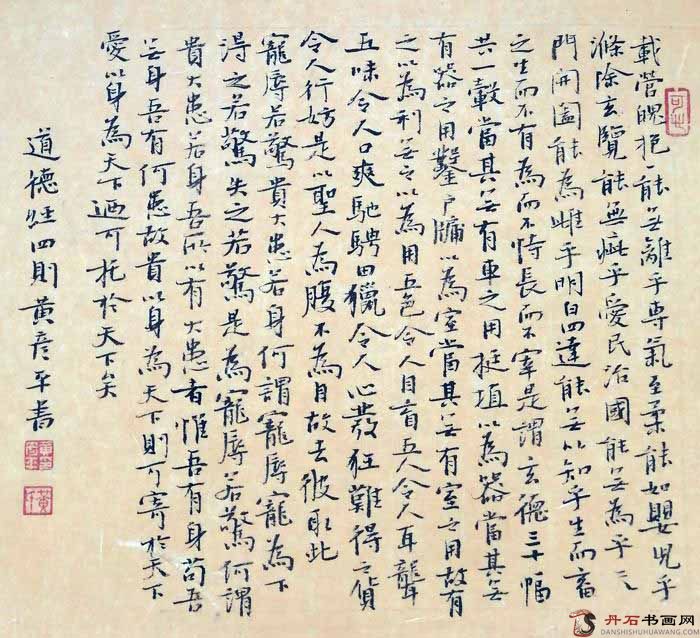 載營魄抱一能無離乎專氣至柔能如嬰兒乎
滌除玄覽能無疵乎愛民治國能無為乎天
門開闔能為雌乎明白四達能無以知乎生而畜
之生而不有為而不恃長而不宰是謂玄德三十幅
共一轂當其無有車之用挻埴以為器當其無
有器之用鑿戶牖以為室當其無有室之用故有
之以為利無之以為用五色令人目盲五人令人耳聾
五味令人口爽馳騁田獵令人心發狂難得之貨
令人行妨是以聖人為腹不為目故去彼取此
寵辱若驚貴大患若身何謂寵辱寵為下
得之若驚失之若驚是為寵辱若驚何謂
貴大患若身吾所以有大患者惟吾有身苟吾
無身吾有何患故貴以身為天下則可寄於天下
愛以身為天下迺可托於天下矣
道德経四則黄彦平書
丹石书画网
DANSHISHUHUAWANG.COM